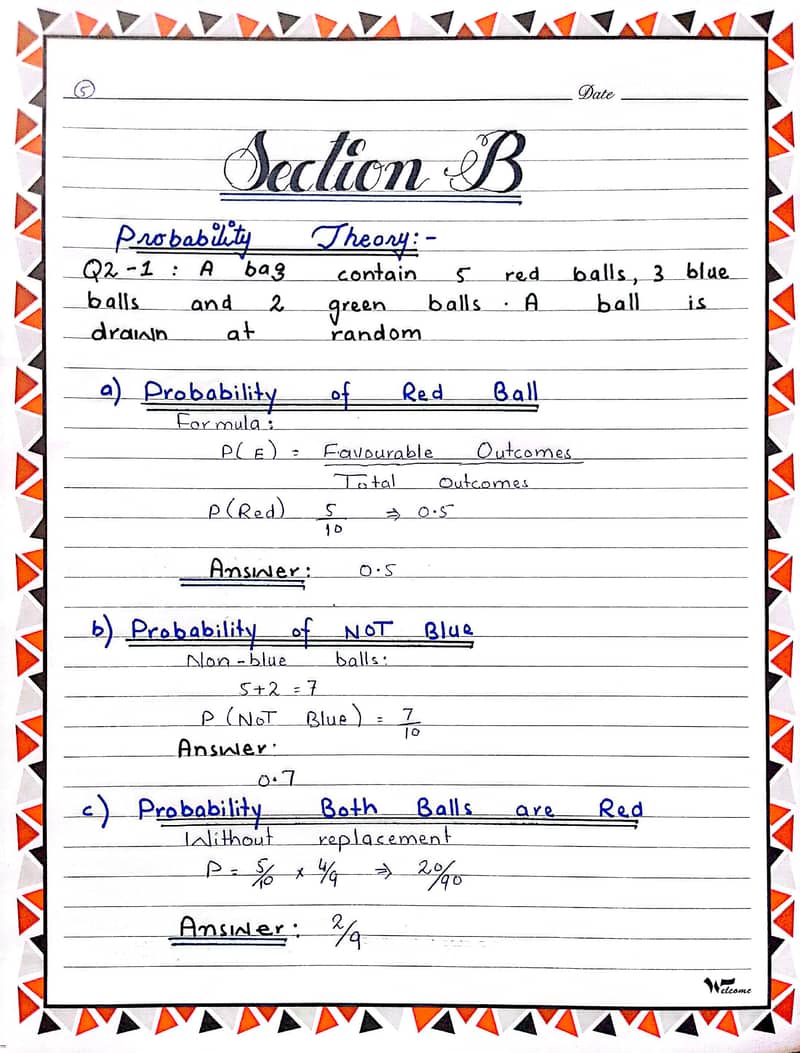 5
Date
Section B
Probability Theory:-
Q2-1 : A bag contain 5 red balls, 3 blue
balls and 2 green balls. A ball is
drawn at random
a) Probability of Red Ball
Formula:
P(E) = Favourable Outcomes
Total Outcomes
P(Red) 5/10 ⇒ 0.5
Answer: 0.5
b) Probability of NOT Blue
Non-blue balls:
5+2 = 7
P (NOT Blue) = 7/10
Answer:
0.7
c) Probability Both Balls are Red
Without replacement
P = 5/10 × 4/9 ⇒ 20/90
Answer: 2/9
Welcome